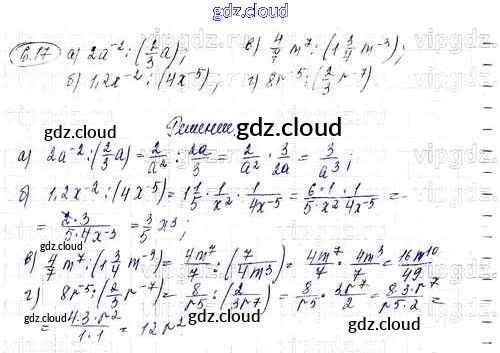 gdz.cloud
6.17 а) 2a⁻² : (2/3 a); в) 4/7 m⁷ : (1 3/4 m⁻³);
б) 1,2x⁻² : (4x⁻⁵); г) 8r⁻⁵ : (2/3 r⁻⁷)
Решение. gdz.cloud
а) 2a⁻² : (2/3 a) = 2/a² : 2a/3 = 2/a² · 3/2a = 3/a³;
б) 1,2x⁻² : (4x⁻⁵) = 1 1/5 · 1/x² · 1/4x⁻⁵ = 6·1·1/5·x²4x⁻⁵ =
= 2·3/5·4x⁻³ = 3/5 x³;
в) 4/7 m⁷ : (1 3/4 m⁻³) = 4m⁷/7 : (7/4m³) = 4m⁷/7 · 4m³/7 = 16m¹⁰/49
г) 8r⁻⁵ : (2/3 r⁻⁷) = 8/r⁵ : (2/3r⁷) = 8/r⁵ · 3r⁷/2 = 8·3·r⁷/r⁵·2 =
= 4·3·r²/1·1 = 12r²
gdz.cloud